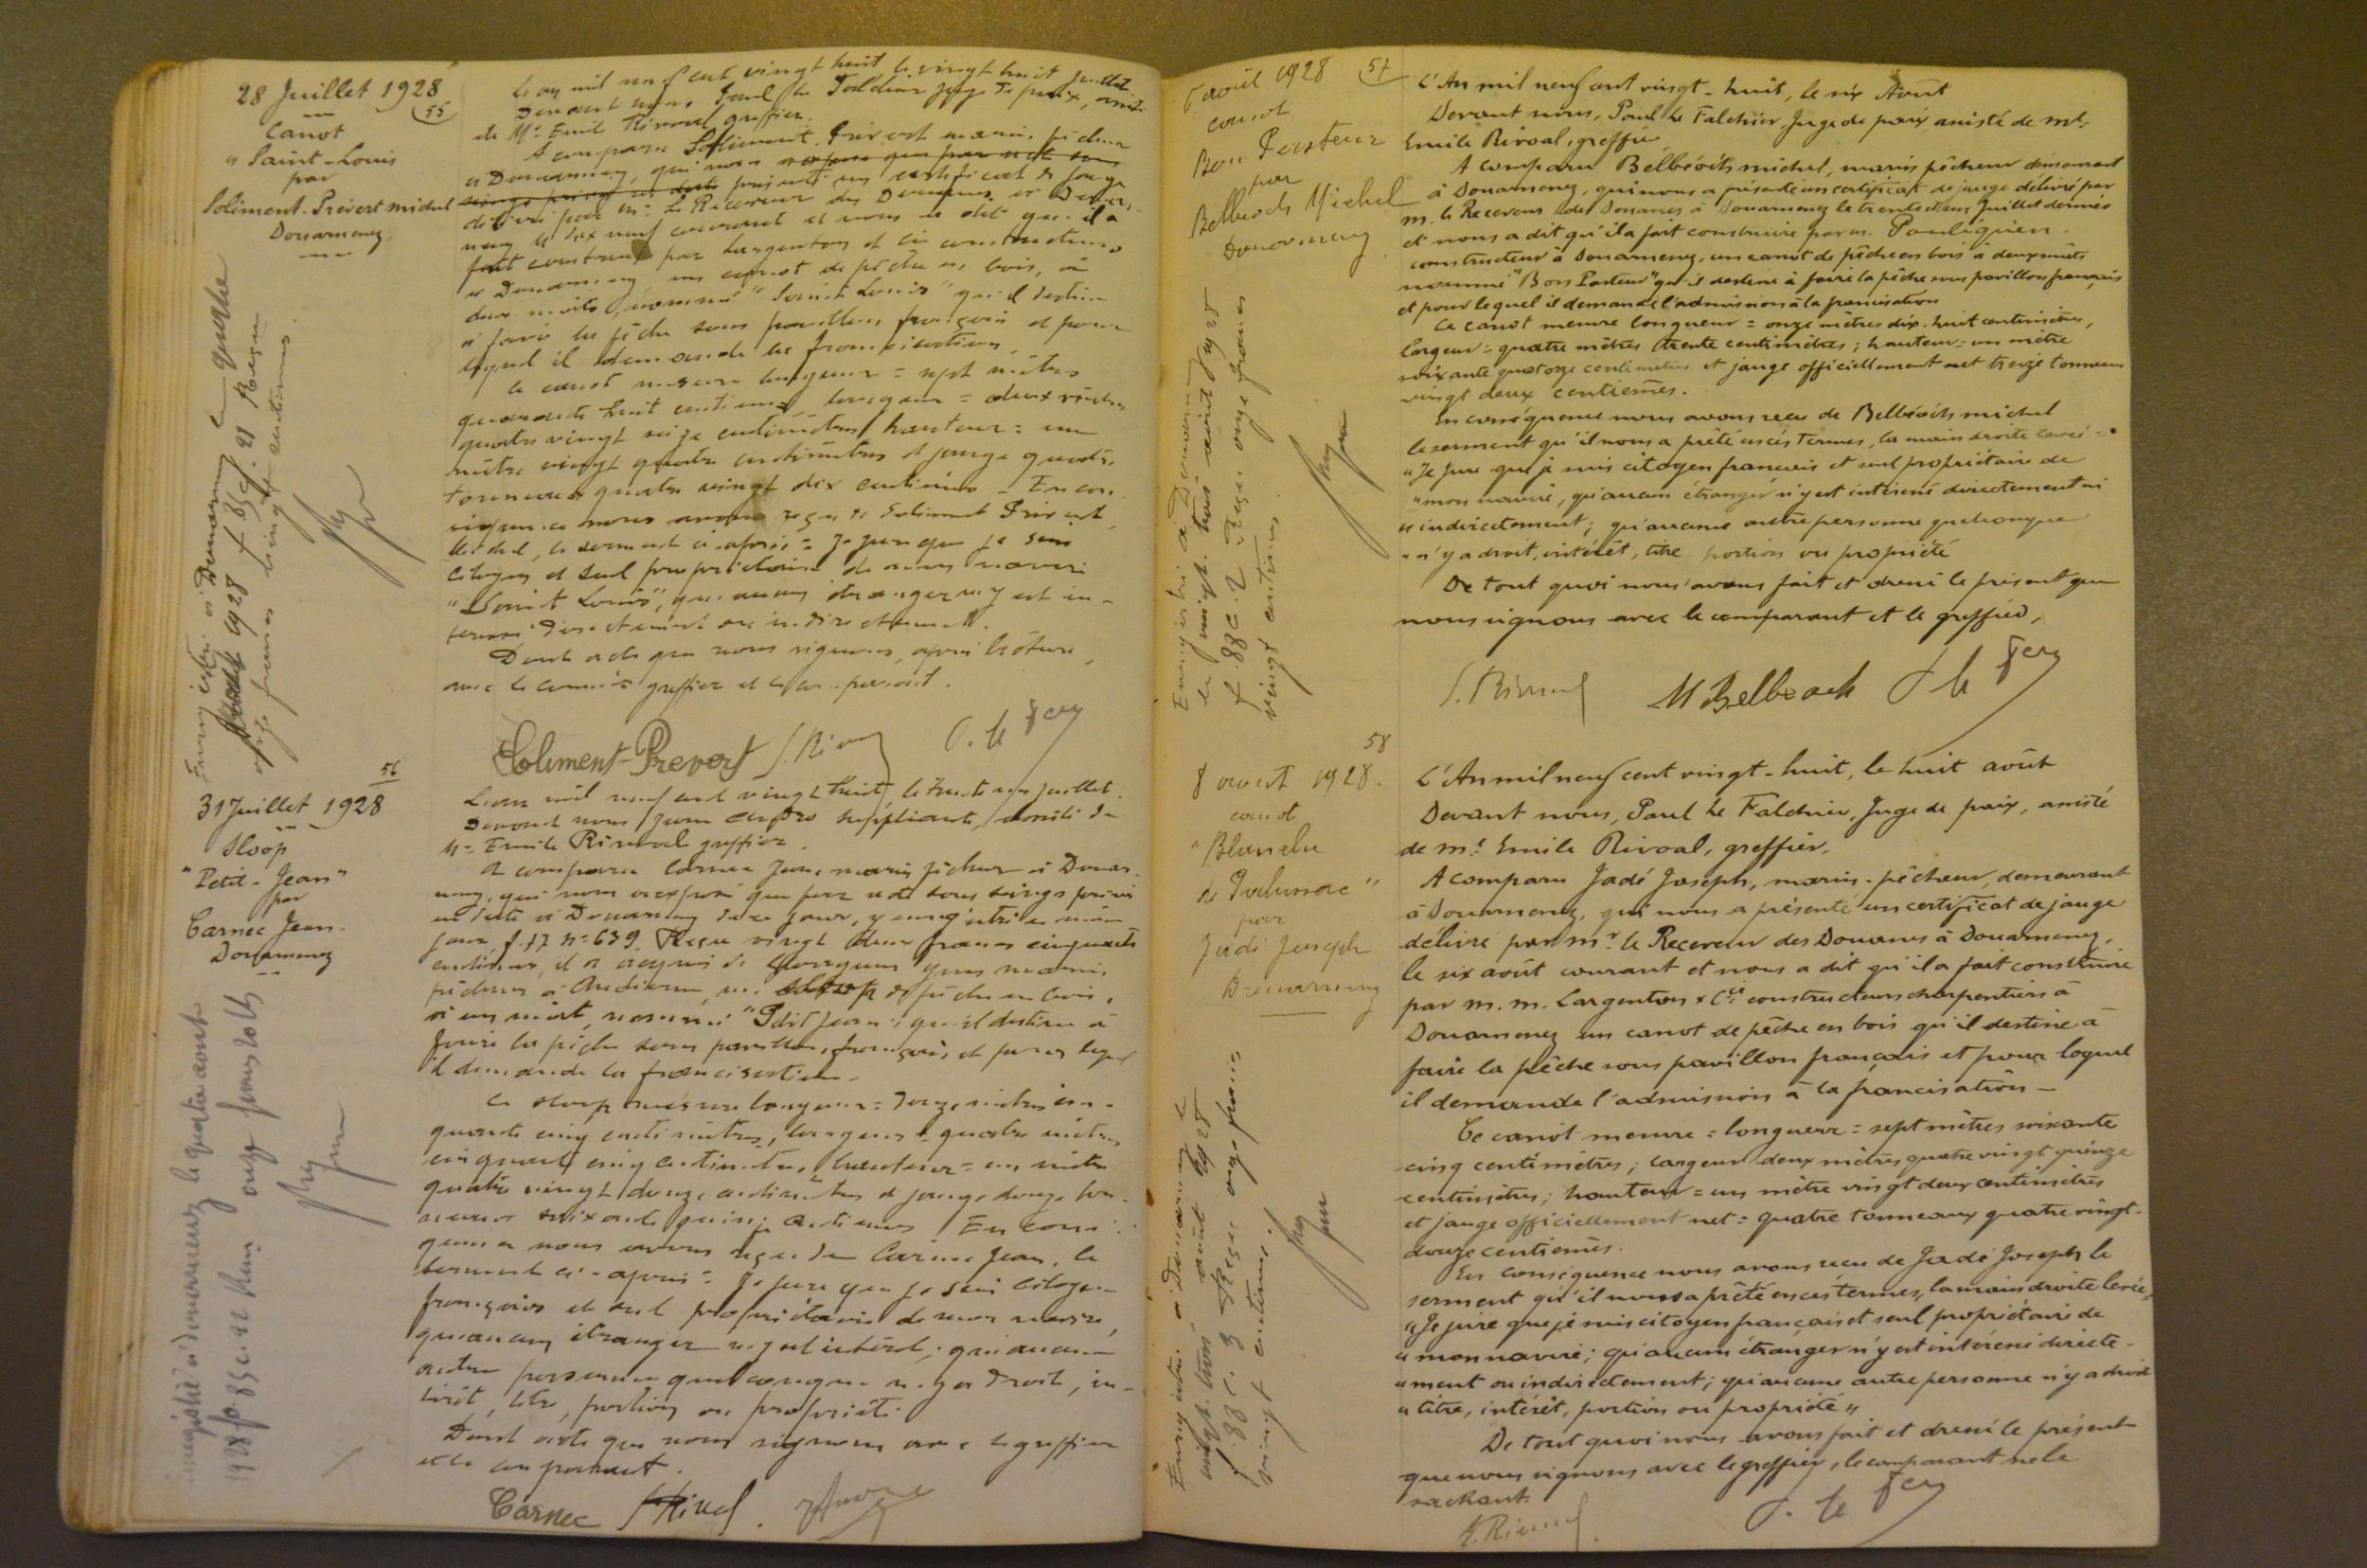 28 Juillet 1928
55
Canot
"Saint-Louis
par
Soliment-Prévert Michel
Douarnenez
L'an mil neuf cent vingt huit le vingt huit Juillet
Devant nous, Paul Le Falchier Juge de paix, assisté
de Mr. Emile Rivoal greffier.
A comparu Soliment-Prévert marin pêcheur
à Douarnenez, qui nous
présenté un certificat de jauge
délivré par Mr. le Receveur des Douanes à Douar-
nenez le dix neuf courant et nous a dit que il a
fait construire par Largenton et Cie constructeurs
à Douarnenez, un canot de pêche en bois, à
deux mâts, nommé "Saint Louis" qu'il destine
à faire la pêche sous pavillon français et pour
lequel il demande la francisation.
Ce canot mesure longueur = sept mètres
quarante huit centimes, largeur = deux mètres
quatre vingt seize centimètres hauteur = un
mètre vingt quatre centimètres et jauge quatre
tonneaux quatre vingt dix centièmes - En con-
séquence nous avons reçu de Soliment Prévert
Michel, le serment ci-après = Je jure que je suis
citoyen et seul propriétaire de mon navire
"Saint Louis", qu'aucun étranger n'y est in-
téressé directement ou indirectement.
Dont acte que nous signons, après lecture,
avec le commis greffier et le comparant.
Soliment-Prevert E. Rivoal P. le Fer
Enregistré à Douarnenez le quatre
août 1928 f. 85 c. 21 Reçu
onze francs vingt centimes
56
31 Juillet 1928
Sloop
"Petit-Jean"
par
Carnec Jean
Douarnenez
L'an mil neuf cent vingt huit, le trente un juillet.
Devant nous, suppléant, assisté de
Mr. Emile Rivoal greffier.
A comparu Carnec Jean, marin pêcheur à Douar-
nenez, qui nous a exposé que par acte sous seings privés
en date à Douarnenez de ce jour, y enregistré le même
jour, f. 17 no. 639. Reçu vingt deux francs cinquante
centimes, il a acquis de marin
pêcheur à Audierne, un sloop de pêche en bois,
à un mât, nommé "Petit Jean" qu'il destine à
faire la pêche sous pavillon français, et pour lequel
il demande la francisation.
Ce sloop mesure longueur = onze mètres cin-
quante cinq centimètres, largeur = quatre mètres
cinquante cinq centimètres, hauteur = un mètre
quatre vingt douze centimètres et jauge douze ton-
neaux soixante quinze centièmes En consé-
quence nous avons reçu de Carnec Jean, le
serment ci-après = Je jure que je suis citoyen
français et seul propriétaire de mon navire,
qu'aucun étranger n'y est intéressé; qu'aucune
autre personne quelconque n'y a droit, in-
térêt, titre, portion ou propriété.
Dont acte que nous signons avec le greffier
et le comparant.
Carnec E. Rivoal
enregistré à Douarnenez le quatre août
1928 f. 85 c. 22 Reçu onze francs 20 cts
6 août 1928
57
canot
Bon Pasteur
par
Belbeoch Michel
Douarnenez
L'An mil neuf cent vingt-huit, le six Août
Devant nous, Paul Le Falchier, Juge de paix assisté de Mr.
Emile Rivoal, greffier
A comparu Belbéoch Michel, marin pêcheur demeurant
à Douarnenez, qui nous a présenté un certificat de jauge délivré par
M. le Receveur des Douanes à Douarnenez le trente et un Juillet dernier
et nous a dit qu'il a fait construire par M. Pouliquen
constructeur à Douarnenez, un canot de pêche en bois à deux mâts
nommé "Bon Pasteur" qu'il destine à faire la pêche sous pavillon français
et pour lequel il demande l'admission à la francisation
Ce canot mesure longueur = onze mètres dix-huit centimètres,
largeur = quatre mètres trente centimètres; hauteur = un mètre
soixante quatorze centimètres et jauge officiellement net treize tonneaux
vingt deux centièmes.
En conséquence nous avons reçu de Belbéoch Michel
le serment qu'il nous a prêté en ces termes, la main droite levée -
"Je jure que je suis citoyen français et seul propriétaire de
"mon navire, qu'aucun étranger n'y est intéressé directement ni
"indirectement; qu'aucune autre personne quelconque
"n'y a droit, intérêt, titre portion ou propriété
De tout quoi nous avons fait et dressé le présent que
nous signons avec le comparant et le greffier,
E. Rivoal M Belbeoch P. le Fer
Enregistré à Douarnenez
le vingt trois août 1928
f. 88 c. 2 Reçu onze francs
vingt centimes
58
8 août 1928.
canot
"Blanche
de Pabusac"
par
Jadé Joseph
Douarnenez
L'An mil neuf cent vingt-huit, le huit août
Devant nous, Paul Le Falchier, Juge de paix, assisté
de Mr. Emile Rivoal, greffier,
A comparu Jadé Joseph, marin-pêcheur, demeurant
à Douarnenez, qui nous a présenté un certificat de jauge
délivré par Mr. le Receveur des Douanes à Douarnenez,
le six août courant et nous a dit qu'il a fait construire
par M.M. Largenton & Cie constructeurs charpentiers à
Douarnenez un canot de pêche en bois qu'il destine à
faire la pêche sous pavillon français et pour lequel
il demande l'admission à la francisation -
Ce canot mesure = longueur = sept mètres soixante
cinq centimètres; largeur deux mètres quatre vingt quinze
centimètres; hauteur = un mètre vingt deux centimètres
et jauge officiellement net = quatre tonneaux quatre vingt-
douze centièmes.
En conséquence nous avons reçu de Jadé Joseph le
serment qu'il nous a prêté en ces termes, la main droite levée,
"Je jure que je suis citoyen français et seul propriétaire de
"mon navire; qu'aucun étranger n'y est intéressé directe-
"ment ou indirectement; qu'aucune autre personne n'y a droit
"titre, intérêt, portion ou propriété"
De tout quoi nous avons fait et dressé le présent
que nous signons avec le greffier, le comparant ne le
sachant.
E. Rivoal P. le Fer
Enregistré à Douarnenez le
vingt trois août 1928
f. 88 c. 3 Reçu onze francs
vingt centimes.